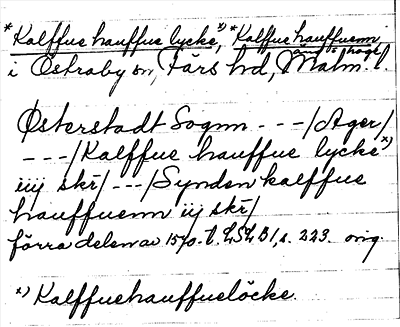 *Kalffue hauffue lycke,ˣ⁾ *Kalffue hauffuenn
i Östraby sn, Färs hd, Malm. l.
Østerstadt Sognn - - - /Ager/
- - -/Kalffue hauffue lyckeˣ⁾
iiij skr/ - - -/Synden kalffue
hauffuenn iij skr/
förra delen av 1570-t. LSLB1, s. 223. orig.
ˣ⁾ Kalffuehauffuelöcke.